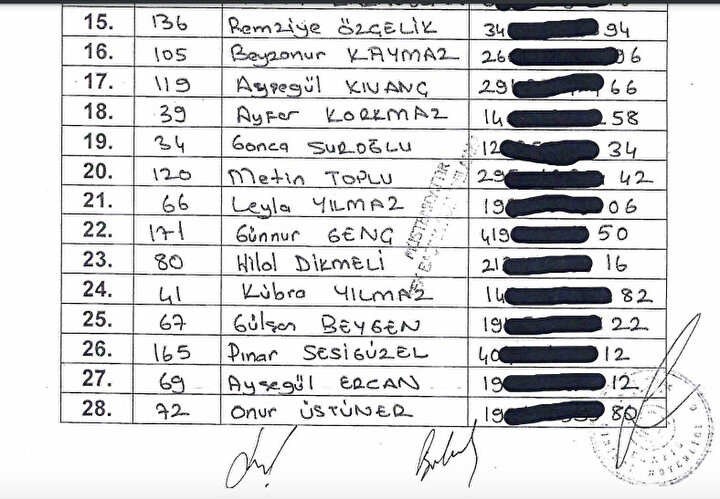 15. 136 Remziye ÖZÇELİK 34 94
16. 105 Beyzanur KAYMAZ 26 96
17. 119 Ayşegül KIVANÇ 29 66
18. 39 Ayfer KORKMAZ 14 58
19. 34 Gonca SUROĞLU 12 34
20. 120 Metin TOPLU 29 42
21. 66 Leyla YILMAZ 19 06
22. 171 Günnur GENÇ 419 50
23. 80 Hilal DİKMELİ 21 16
24. 41 Kübra YILMAZ 14 82
25. 67 Gülşen BEYGEN 19 22
26. 165 Pınar SESİGÜZEL 40 12
27. 69 Ayşegül ERCAN 19 12
28. 72 Onur ÜSTÜNER 19 80